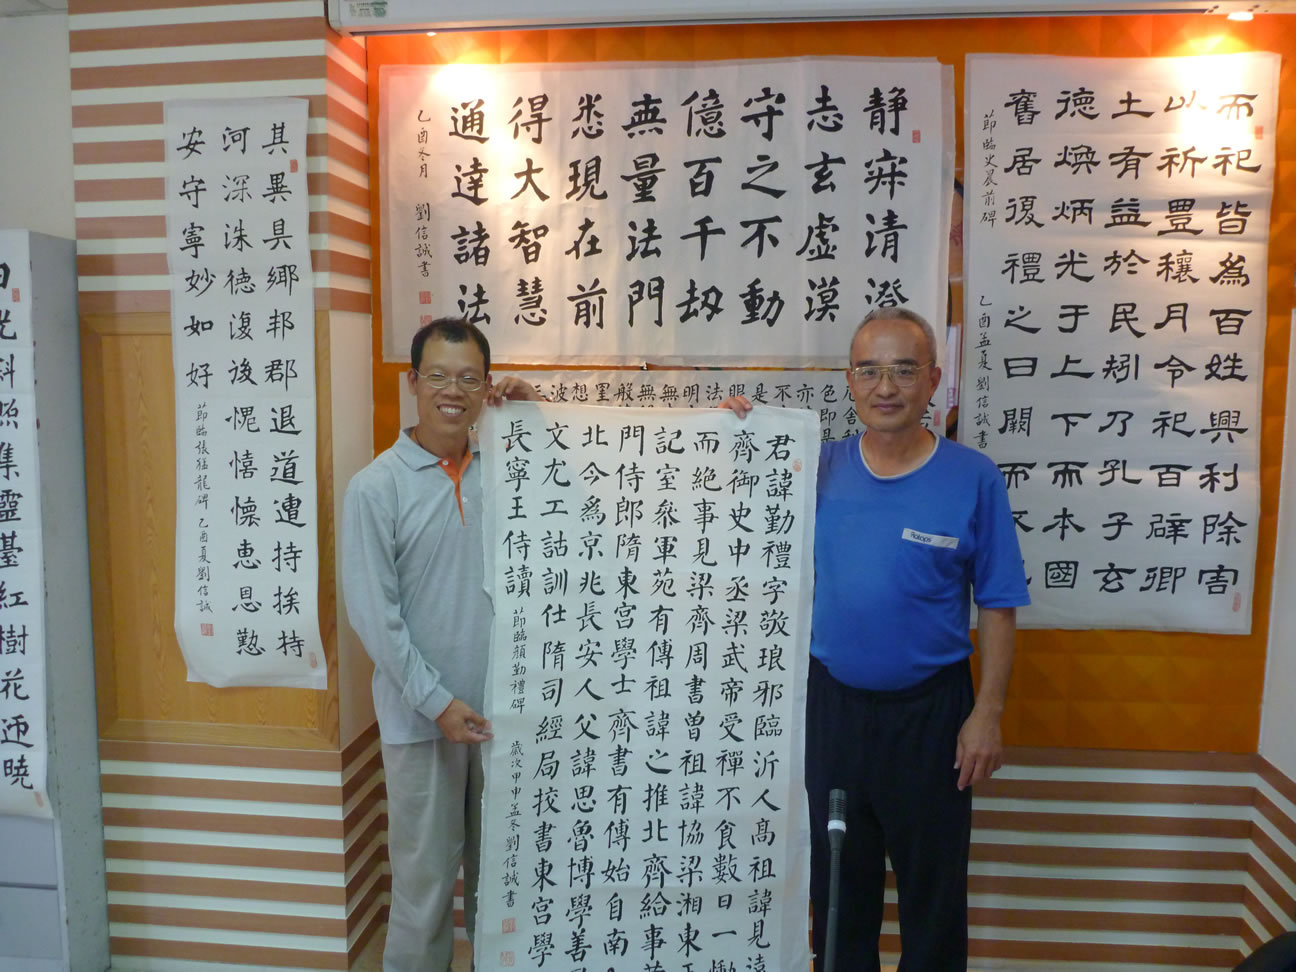 而祀皆為百姓興利除害
以祈豊穰月令祀百辟卿
士有益於民矧乃孔子玄
德煥炳光于上下而本國
舊居復禮之日闕而不祀
節臨史晨前碑 乙酉孟夏劉信誠書
静㝥清澄
志玄虛漠
守之不動
億百千劫
無量法門
悉現在前
得大智慧
通達諸法
乙酉冬月 劉信誠書
厄舍利
色即是
亦
不
是
眼
法
明
無
無
般
罣
想
波
三
君諱勤禮字敬琅邪臨沂人高祖諱見遠
齊御史中丞梁武帝受禪不食數日一慟
而絕事見梁齊周書曾祖諱協梁湘東王
記室叅軍苑有傳祖諱之推北齊給事黃
門侍郎隋東宮學士齊書有傳始自南入
北今為京兆長安人父諱思魯博學善
文尤工詁訓仕隋司經局挍書東宮學
長寧王侍讀 節臨顏勤禮碑 歲次甲申孟冬劉信誠書
其異具鄉邦郡退道遭持挨持
河深洙德復後愢憘懐恵恩懃
安守寧妙如好 節臨張猛龍碑 乙酉夏劉信誠
日光斜照集靈臺紅樹花迎曉